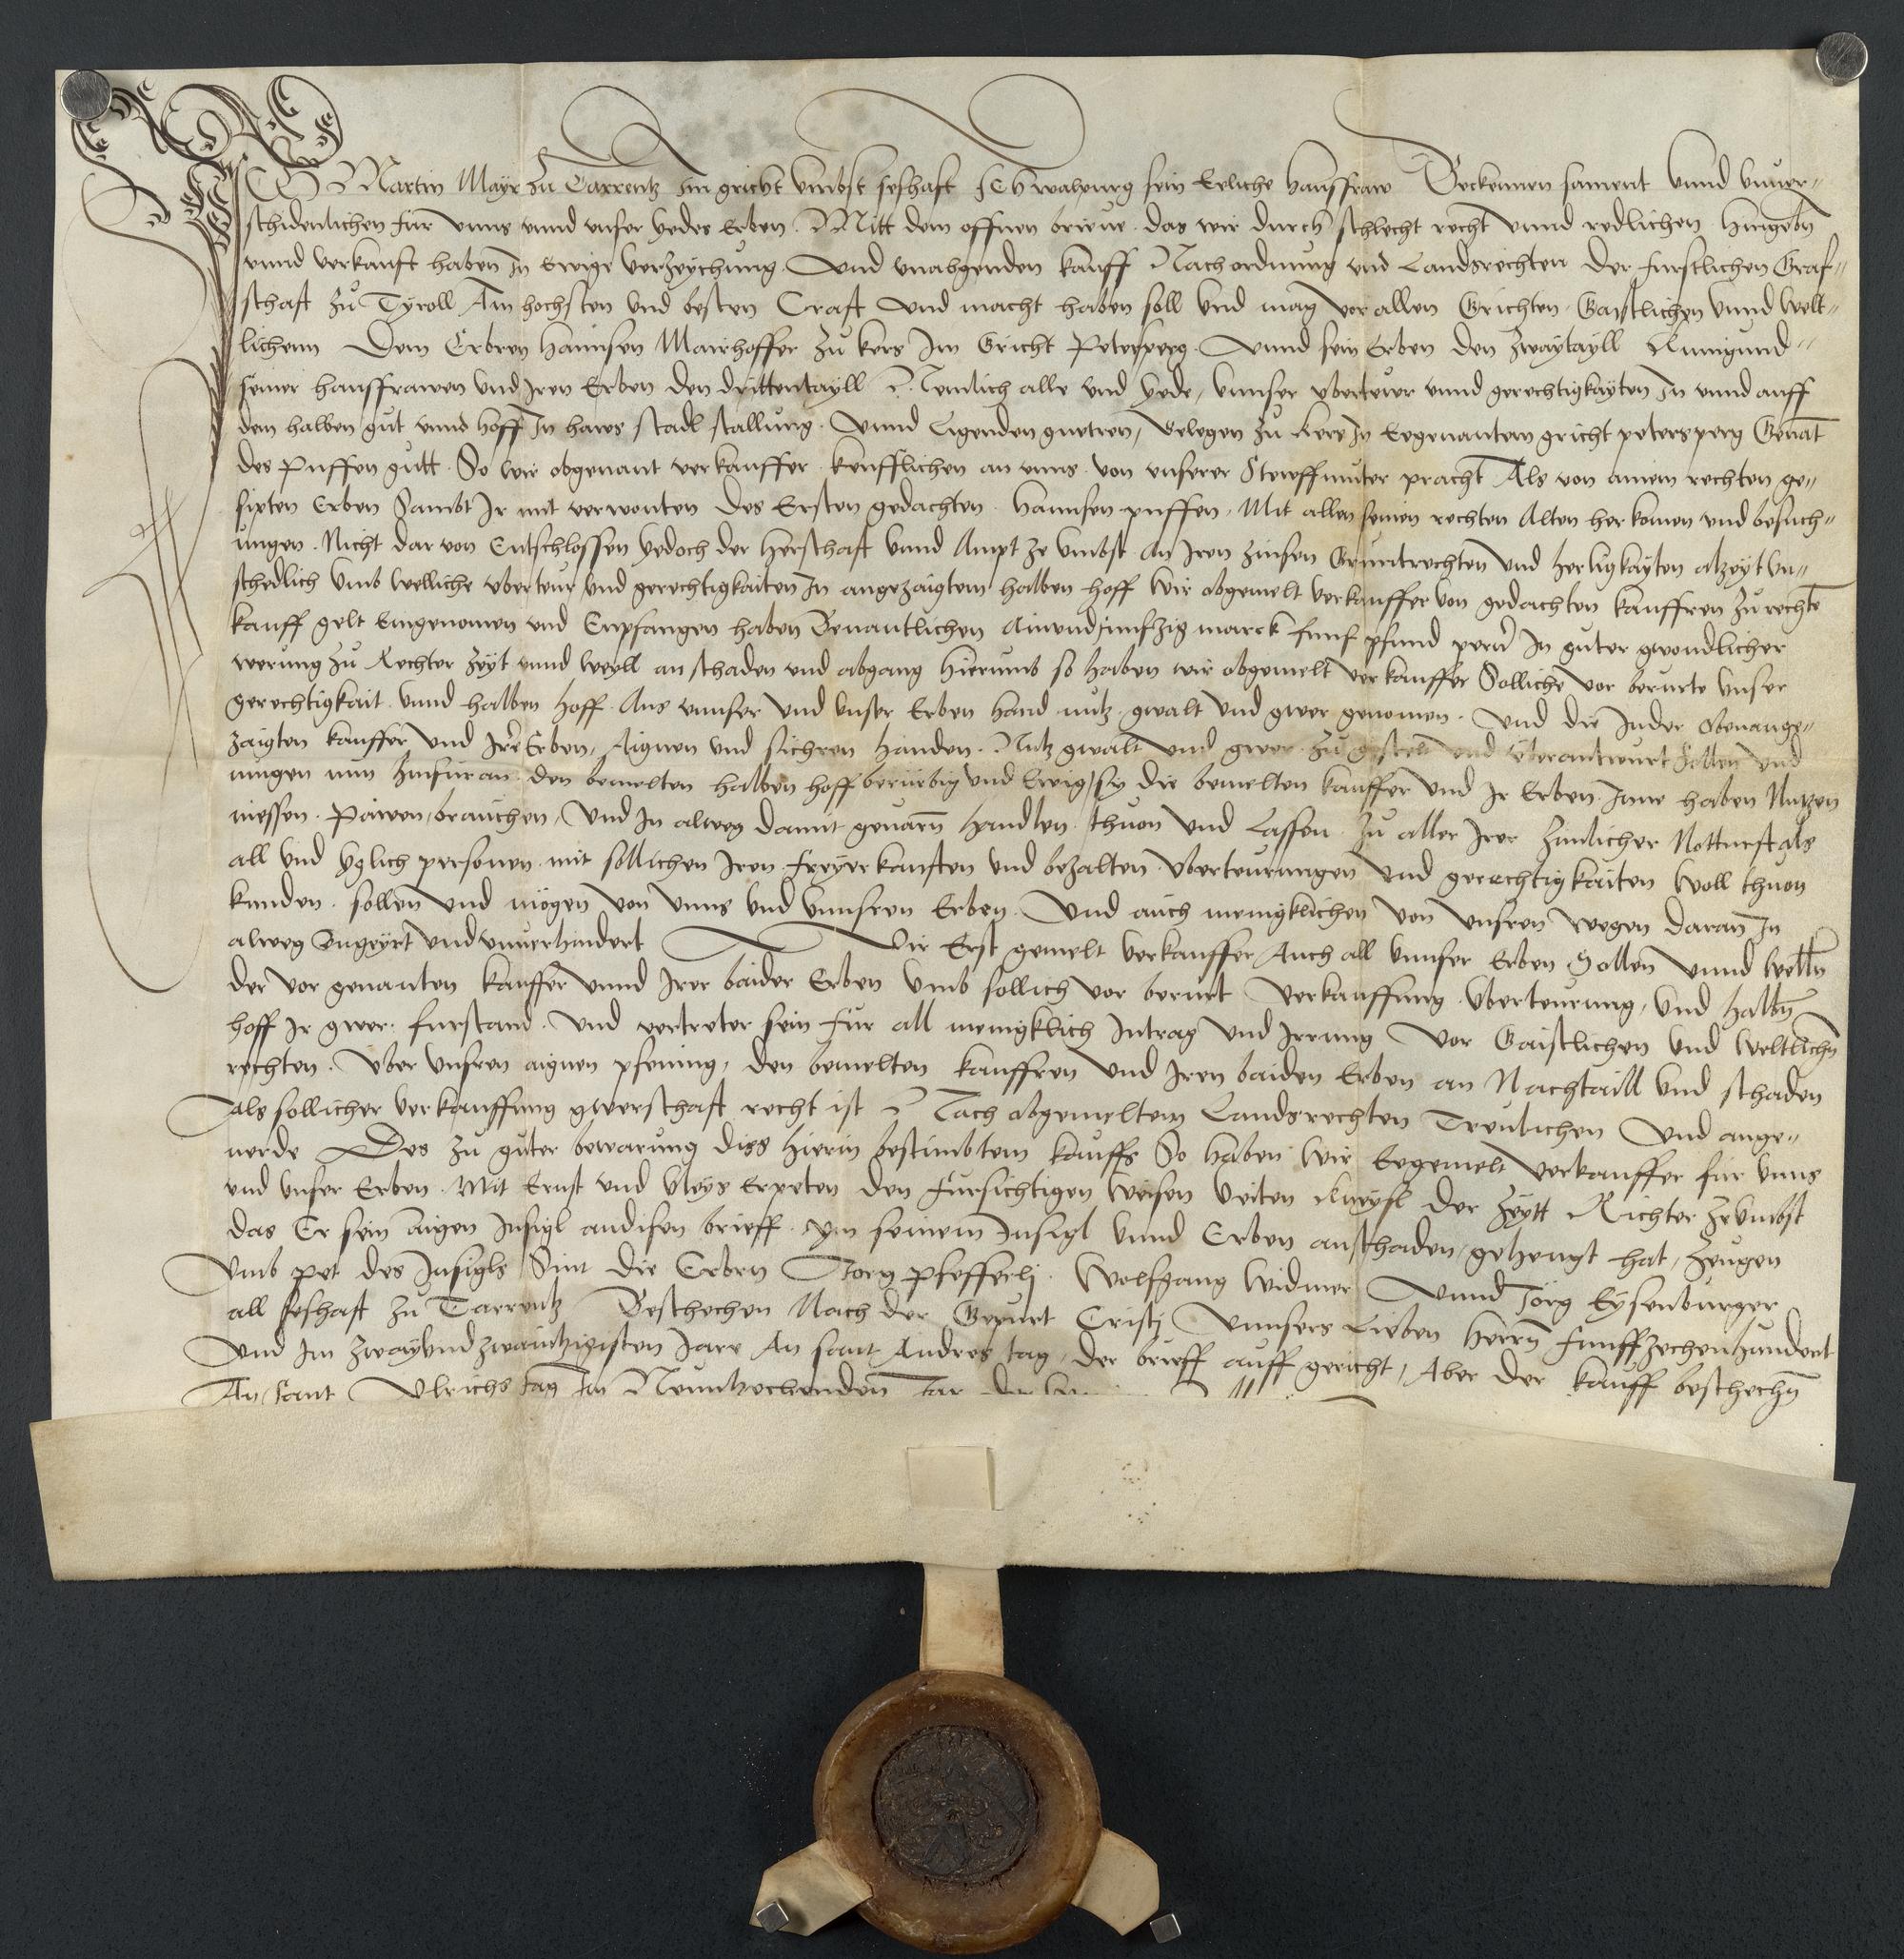 ICh Martin Mayr zu Tarrentz Im gricht Vmbst seshaft Ich walpurg sein Eeliche hausfraw Beckennen sament vnnd vnuer-
schidenlichen für vnns vnnd vnser yedes Erben. Mitt dem offnen brieue das wir durch schlecht recht vnnd redlichen hingebn
vnnd verkauft haben In Ewige verzeychung Vnd vnabgenden kauff Nach ordnung vnd Landsrechten der furstlichen Graf-
schaft zu Tyroll Am hochsten vnd besten Craft Vnd macht haben soll vnd mag vor allen Grichten Gaistlichen vnnd welt-
lichenn Dem Erbren Hannsen Mairhoffer zu kers Im Gricht Petersperg Vnnd sein Erben den zwaytayll Kunigund
seiner hausfrawen vnd Iren Erben den drittentayll Nemlich alle vnd yede, vnnser vberteuer vnnd gerechtigkayten In vnnd auff
dem halben gut vnnd hoff In haws stadl stallung. Vnnd Ligenden guetren, Gelegen zu kers In Eegenantem gricht petersperg Genat
des Puffen gutt. So wir obgenant verkauffer keufflichen an vnns von vnserer Steuffmuter pracht Als von ainem rechten ge-
sipten Erben Sambt Ir mit verwonten des Ersten gedachten Hannsen puffen, Mit allen seinen rechten Alten herkomen vnd besuch-
ungen. Nicht dar von Entschlossen yedoch der Herschaft vnnd Ampt ze vmbst an Iren zinsen Gruntrechten vnd herligkayten alzeyt vn-
schedlich vmb welliche vberteur vnd gerechtigkaiten In angezaigtem halben hoff wir obgemelt verkauffer von gedachten kauffren zu rechte
kauff gelt Eingenomen vnd Enpfangen haben Benantlichen Ainundfunfzig marck funf pfund perner In guter gwondlicher
werung zu Rechter zeyt vnnd weyll an schaden vnd abgang Hierumb so haben wir obgemelt verkauffer Solliche vor berurte vnser
gerechtigkait vnnd halben hoff. Aus vnnser vnd vnser Erben hand nutz gwalt vnd gwer genomen. Vnd die In der obenange-
zaigten kauffer vnd Irer Erben, Aignen vnd sichren handen. Nutz gwalt vnd gwer zu gestelt vnd vberantwurt Sollen vnd
mugen nun hinfuran den bemelten halben hoff beruebig vnd Ewig, sy die bemelten kauffer vnd Ir Erben Inne haben Nutzen
niessen. Pawen, brauchen, Vnd In alweg damit geuarn handlen thuon vnd Lassen zu aller Irer zimlicher Notturft als
all vnd yglich personen mit sollichen Iren freyerkauften vnd bezalten vberteurungen vnd gerechtigkaiten woll thuon
kunden. sollen vnd mögen von vnns vnd vnnsren Erben. Vnd auch menigklichen von vnsren wegen daran In
alweg Vngeyrt vnd vnuerhindert Wir Erst gemelt verkauffer Auch all vnnser Erben Sollen vnnd welln
der vor genanten kauffer vnnd Irer baider Erben vmb sollich vor berurt verkauffung vberteurung, vnd halbn
hoff Ir gwer furstand. Vnd vertreter sein für all menigklich Intrag vnd Irrung Vor Gaistlichen vnd weltlichn
rechten. Vber vnsren aignen pfening, den bemelten kauffren vnd Iren baiden Erben an Nachtaill vnd schaden
Als sollicher verkauffung gwerschaft recht ist Nach obgemeltem Landsrechten Treulichen Vnd ange-
uerde Des zu guter bewarung diss hierin bestimbtem kauffs So haben wir Eegemelt verkauffer für vnns
vnd vnser Erben. Mit Ernst vnd vleys Erpeten den Fursichtigen weisen Veiten der zeytt Richter ze vmbst
das Er sein aigen Insigl an disen brieff ym seinem Insigl vnnd Erben an schaden, gehengt hat, Zeugen
Vmb pet des Insigls Sint die Erbern Jorg Pfefferlj. Wolfgang Widmer Vnnd Jörg Eysenburger
all seshaft zu Tarrentz Beschechen Nach der Gepurt Cristj Vnnsers Lieben Herrn Funffzechenhundert
Vnd Im zwayvndzwaintzigisten Jare An sant Andres tag, der brieff auff gericht, Aber der kauff beschechn
An sant Vlrichs tag Im Neuntzechenden Jar